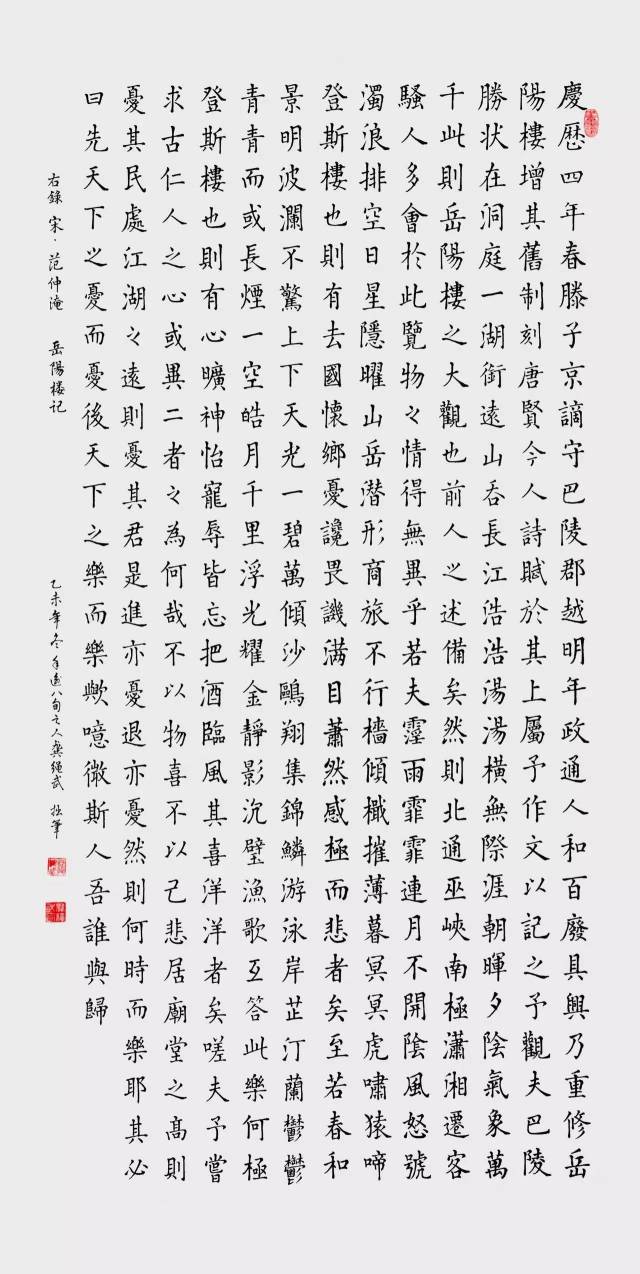 慶歷四年春滕子京謫守巴陵郡越明年政通人和百廢具興乃重修岳
陽樓增其舊制刻唐賢今人詩賦於其上屬予作文以記之予觀夫巴陵
勝狀在洞庭一湖銜遠山吞長江浩浩湯湯橫無際涯朝暉夕陰氣象萬
千此則岳陽樓之大觀也前人之述備矣然則北通巫峽南極瀟湘遷客
騷人多會於此覽物々情得無異乎若夫霪雨霏霏連月不開陰風怒號
濁浪排空日星隱曜山岳潛形商旅不行檣傾檝摧薄暮冥冥虎嘯猿啼
登斯樓也則有去國懷鄉憂讒畏譏滿目蕭然感極而悲者矣至若春和
景明波瀾不驚上下天光一碧萬傾沙鷗翔集錦鱗游泳岸芷汀蘭鬱鬱
青青而或長煙一空皓月千里浮光耀金靜影沉璧漁歌互答此樂何極
登斯樓也則有心曠神怡寵辱皆忘把酒臨風其喜洋洋者矣嗟夫予嘗
求古仁人之心或異二者々為何哉不以物喜不以己悲居廟堂之高則
憂其民處江湖々遠則憂其君是進亦憂退亦憂然則何時而樂耶其必
曰先天下之憂而憂後天下之樂而樂歟噫微斯人吾誰與歸
右錄 宋·范仲淹 岳陽樓记 乙未年冬年逾八旬之人龔繩武 拙筆